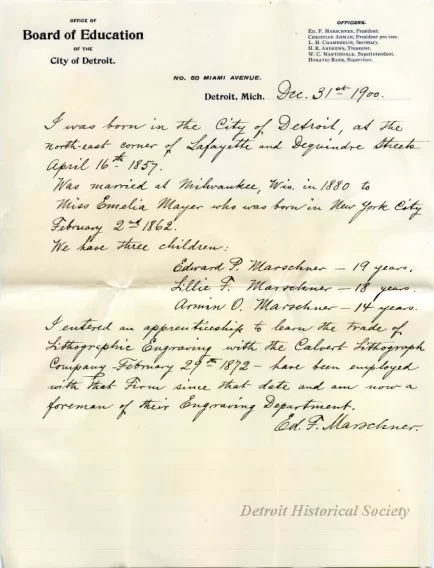 OFFICE OF
Board of Education
OF THE
City of Detroit.
OFFICERS.
ED. F. MARSCHNER, President.
CHRISTIAN AMMAN, President pro tem.
L. H. CHAMBERLIN, Secretary.
H. R. ANDREWS, Treasurer.
W. C. MARTINDALE, Superintendent.
HORATIO BARR, Supervisor.
NO. 50 MIAMI AVENUE.
Detroit, Mich. Dec. 31st 1900.
I was born in the City of Detroit, at the
north-east corner of Lafayette and Dequindre Streets
April 16th 1857.
Was married at Milwaukee, Wis. in 1880 to
Miss Emelia Mayer who was born in New York City
February 2nd 1862.
We have three children:
Edward P. Marschner – 19 years.
Lillie F. Marschner – 18 years.
Armin O. Marschner – 14 years.
I entered an apprenticeship to learn the trade of
Lithographic Engraving with the Calvert Lithograph
Company February 29th 1872 – have been employed
with that Firm since that date and am now a
foreman of their Engraving Department.
Ed. F. Marschner.
Detroit Historical Society